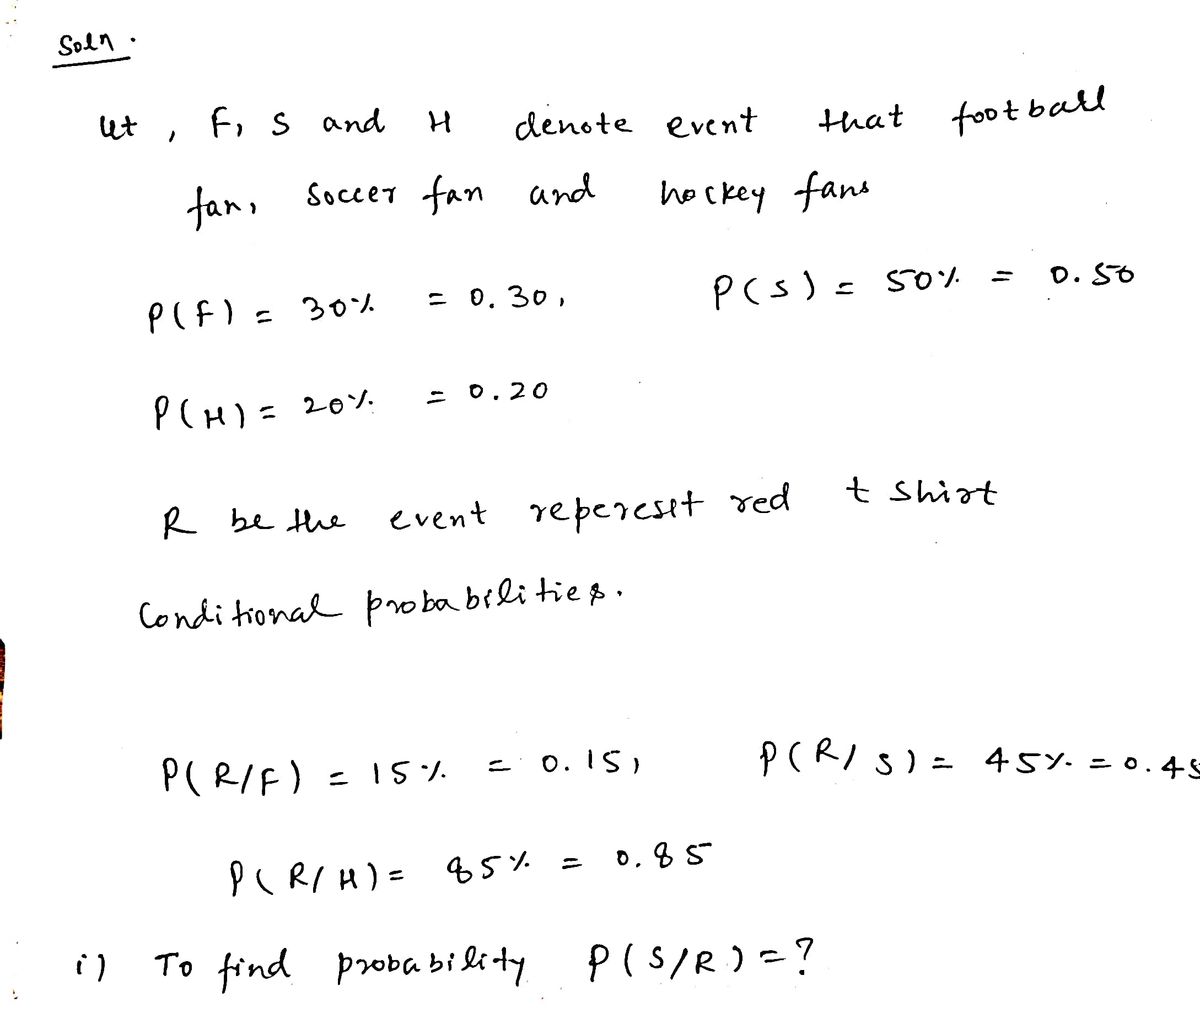 Soln.
let, F, S and H denote event that football
fan, soccer fan and hockey fans
P(F) = 30% = 0.30, P(S) = 50% = 0.50
P(H) = 20% = 0.20
R be the event reperesit red t shirt
Conditional probabilities.
P(R/F) = 15% = 0.15, P(R/S) = 45% = 0.45
P(R/H) = 85% = 0.85
i) To find probability P(S/R) = ?